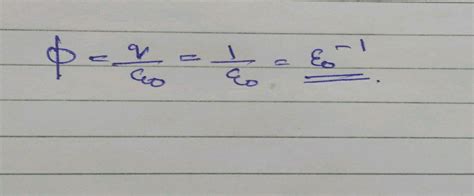 ϕ = q/ε₀ = 1/ε₀ = ε₀⁻¹.